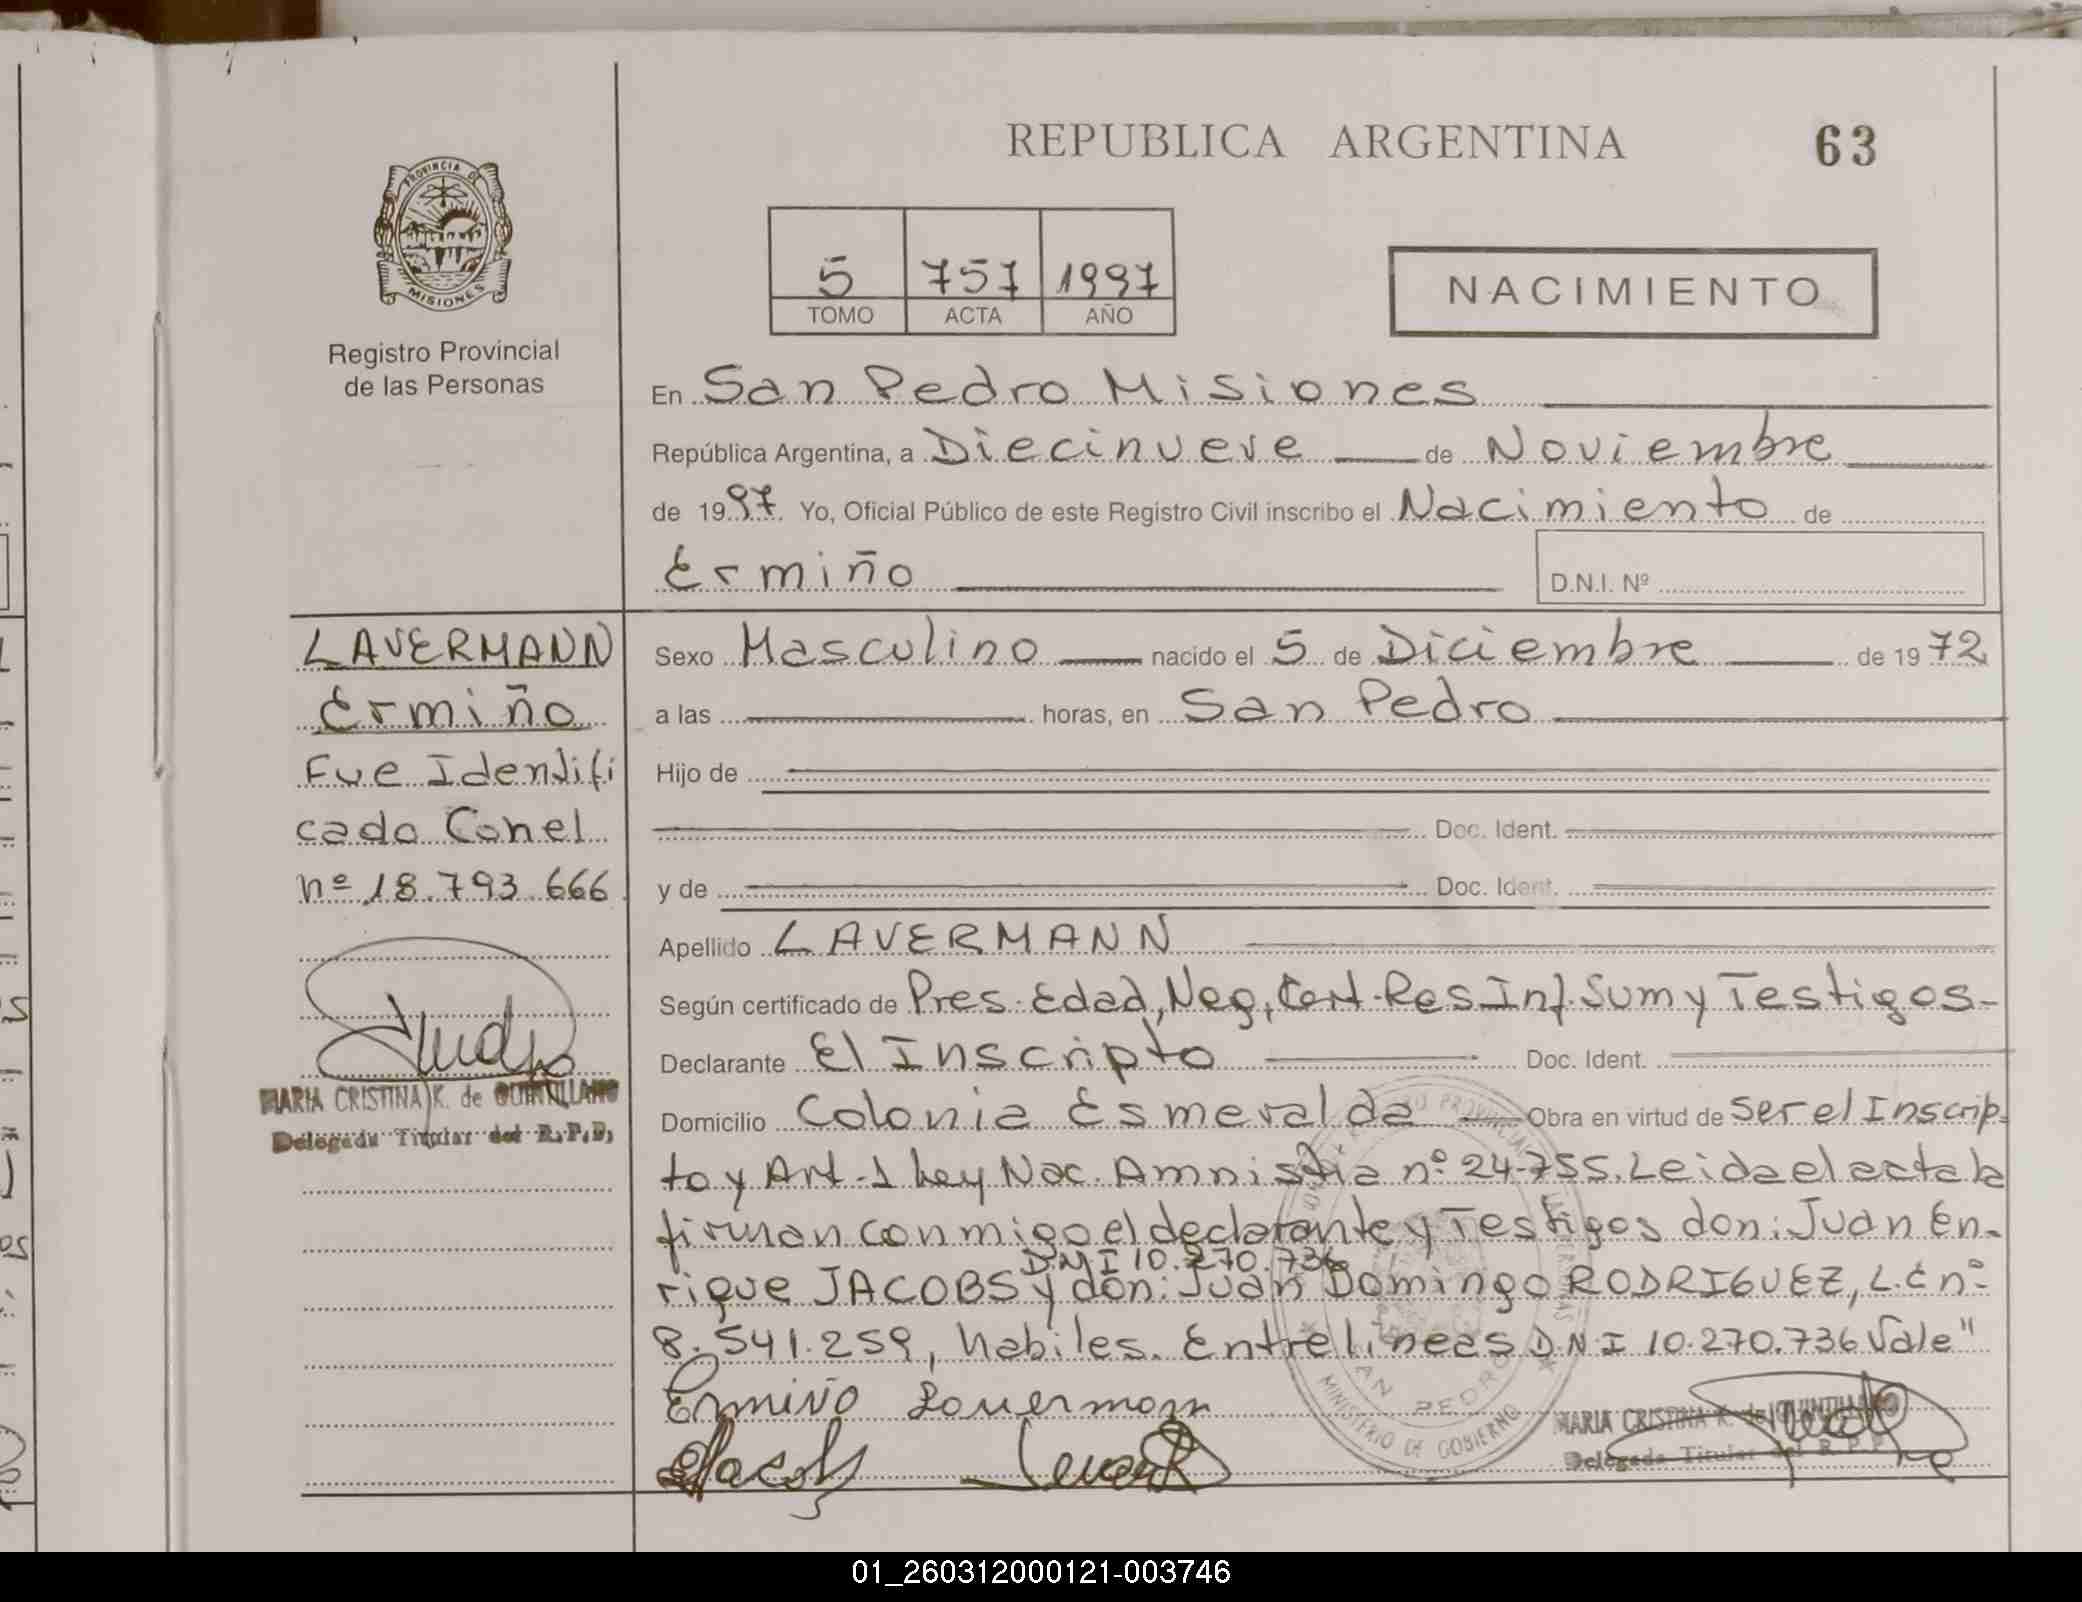 REPUBLICA ARGENTINA
63
PROVINCIA DE
MISIONES
Registro Provincial
de las Personas
5 757 1997
TOMO ACTA AÑO
NACIMIENTO
En San Pedro Misiones
República Argentina, a Diecinueve de Noviembre
de 1997. Yo, Oficial Público de este Registro Civil inscribo el Nacimiento de
Ermiño
D.N.I. Nº
LAVERMANN
Ermiño
Fue Identifi
cado Conel
nº 18.793.666
MARIA CRISTINA K. de QUINTILLANO
Delegada Titular del R.P.P.
Sexo Masculino nacido el 5 de Diciembre de 1972
a las horas, en San Pedro
Hijo de
Doc. Ident.
y de Doc. Ident.
Apellido LAVERMANN
Según certificado de Pres. Edad, Neg, Cert. Res Inf. Sum y Testigos-
Declarante El Inscripto Doc. Ident.
Domicilio Colonia Esmeralda Obra en virtud de ser el Inscrip-
to y Art-1 Ley Nac. Amnistia nº 24-755. Leida el acta la
firman conmigo el declarante y Testigos don: Juan En-
DNI 10.270.736
rique JACOBS y don: Juan Domingo RODRIGUEZ, L.E nº
8.541.259, habiles. Entrelineas D.N.I 10.270.736 Vale"
Ermiño Lavermann
MARIA CRISTINA K. de QUINTILLANO
Delegada Titular del R.P.P.
SAN PEDRO
MINISTERIO DE GOBIERNO
01_260312000121-003746